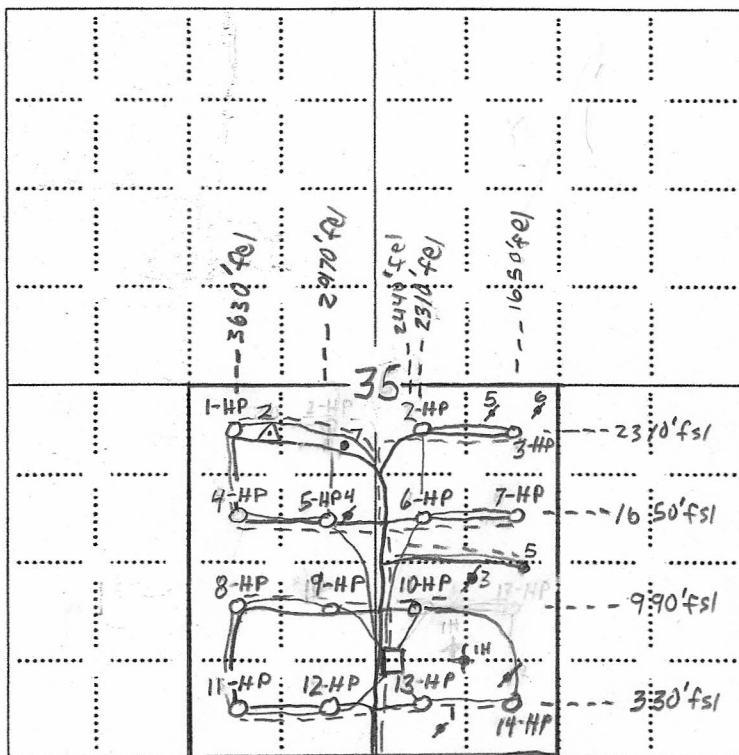 3630'fel
2970'fel
2440'fel
2310'fel
1650'fel
35
1-HP
2
7
2-HP
5
6
3-HP
2310'fsl
4-HP
5-HP
4
6-HP
7-HP
1650'fsl
5
3
8-HP
9-HP
10-HP
990'fsl
1H
11-HP
12-HP
13-HP
1
14-HP
330'fsl